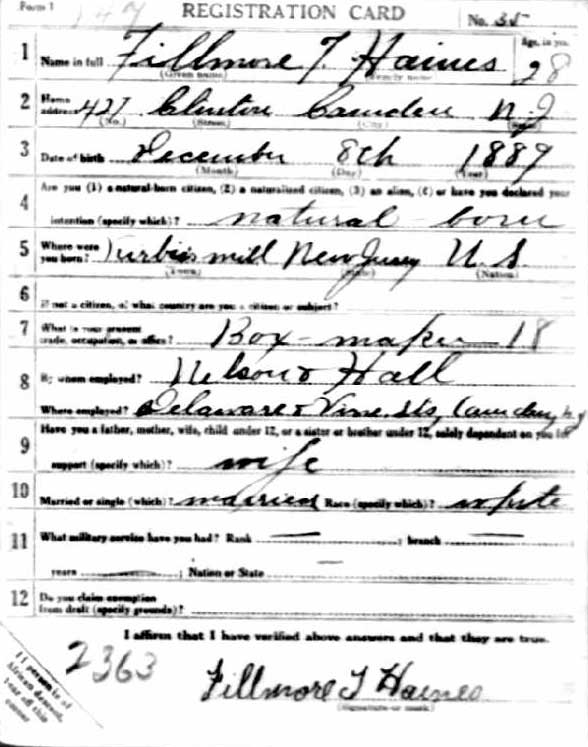 Form 1
REGISTRATION CARD
No. 35
1 Name in full Fillmore T. Haines Age, in yrs. 28
(Given name) (Family name)
2 Home address 427 Clinton Camden N.J
(No.) (Street) (City) (State)
3 Date of birth December 8th 1889
(Month) (Day) (Year)
4 Are you (1) a natural-born citizen, (2) a naturalized citizen, (3) an alien, (4) or have you declared your
intention (specify which)? natural - born
5 Where were you born? mill New Jersey U. S.
(Town) (State) (Nation)
6 If not a citizen, of what country are you a citizen or subject?
7 What is your present trade, occupation, or office? Box - maker 18
8 By whom employed? Nelson & Hall
Where employed? Delaware & Vine Sts, Camden, N J
9 Have you a father, mother, wife, child under 12, or a sister or brother under 12, solely dependent on you for
support (specify which)? wife
10 Married or single (which)? married Race (specify which)? white
11 What military service have you had? Rank — ; branch —
years ; Nation or State —
12 Do you claim exemption from draft (specify grounds)?
I affirm that I have verified above answers and that they are true.
2363
Fillmore T Haines
(Signature or mark)
If person is of
African descent,
tear off this
corner